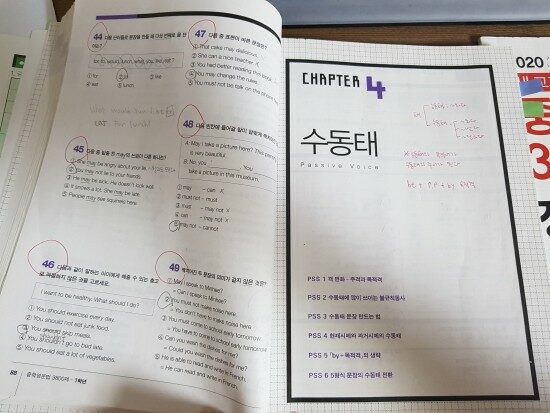 44 다음 단어들로 문장을 만들 때 다섯 번째로 올 단어는?
for, to, would, lunch, what, you, like, eat ?
① for ② to ③ like
④ eat ⑤ lunch
What would you like to
eat for lunch?
45 다음 중 밑줄 친 may의 쓰임이 다른 하나는?
① She may be angry about your lie.
② You may not lie to your friends.
③ He may be sick. He doesn't look well.
④ It snows a lot. She may be late.
⑤ People may see squirrels here.
46
I want to be healthy. What should I do?
① You should exercise every day.
② You should not eat junk food.
③ You should skip meals.
④ You shouldn't go to bed late.
⑤ You should eat a lot of vegetables.
88 중학영문법 3800제 · 1학년
47 다음 중 표현이 바른 문장은?
① That cake may delicious.
② She can a nice teacher. X
③ You had better reading this book. X
④ You may change the rules.
⑤ You must not be talk on the phone here.
48 다음 빈칸에 들어갈 말이 알맞게 짝지어진
A: May I take a picture here? This painting
is very beautiful.
B: No, you . You
take a picture in this museum.
① may - can X
② must not - must
③ must - may not X
④ can - may not X
⑤ may not - cannot
49 짝지어진 두 문장의 의미가 같지 않은 것은?
① May I speak to Minhee?
= Can I speak to Minhee?
② You must not make noise here.
= You don't have to make noise here.
③ You must come to school early tomorrow.
= You have to come to school early tomorrow.
④ Can you wash the dishes for me?
= Could you wash the dishes for me?
⑤ He is able to read and write in French.
= He can read and write in French.
CHAPTER 4
수동태
Passive Voice
be + p.p + by 목적격
PSS 1 격 변화 - 주격과 목적격
PSS 2 수동태에 많이 쓰이는 불규칙동사
PSS 3 수동태 문장 만드는 법
PSS 4 현재시제와 과거시제의 수동태
PSS 5 「by+목적격」의 생략
PSS 6 5형식 문장의 수동태 전환
020
3